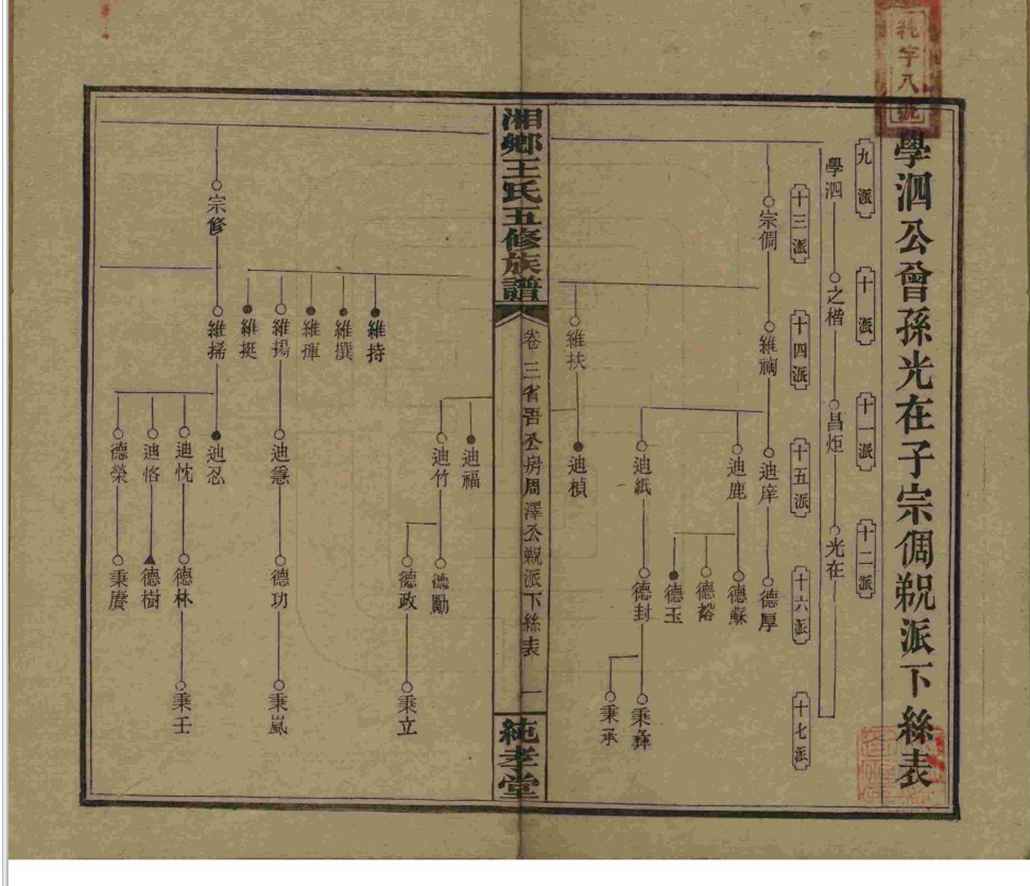 純字八號
學泗公曾孫光在子宗倜覜派下絲表
九派
十派
十一派
十二派
學泗
之楷
昌炬
光在
十三派
十四派
十五派
十六派
十七派
宗倜
維禂
迪庠
德厚
迪鹿
德蘇
德裕
德玉
迪紙
德封
秉彝
秉承
維扶
迪楨
湘鄉王氏五修族譜
卷三省吾公房周澤公覜派下絲表
一
純孝堂
迪福
迪竹
德勵
德政
秉立
維持
維撰
維揮
維揚
迪懸
德功
秉嵐
維挺
宗修
維掃
迪忍
迪忱
德林
秉壬
迪恪
德樹
德榮
秉賡